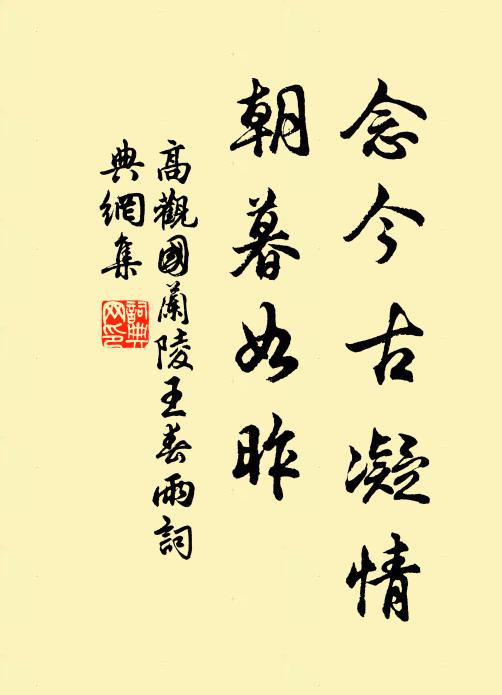 念今古凝情
朝暮如昨
高觀國蘭陵王春雨詞
典網集
詞典
网印